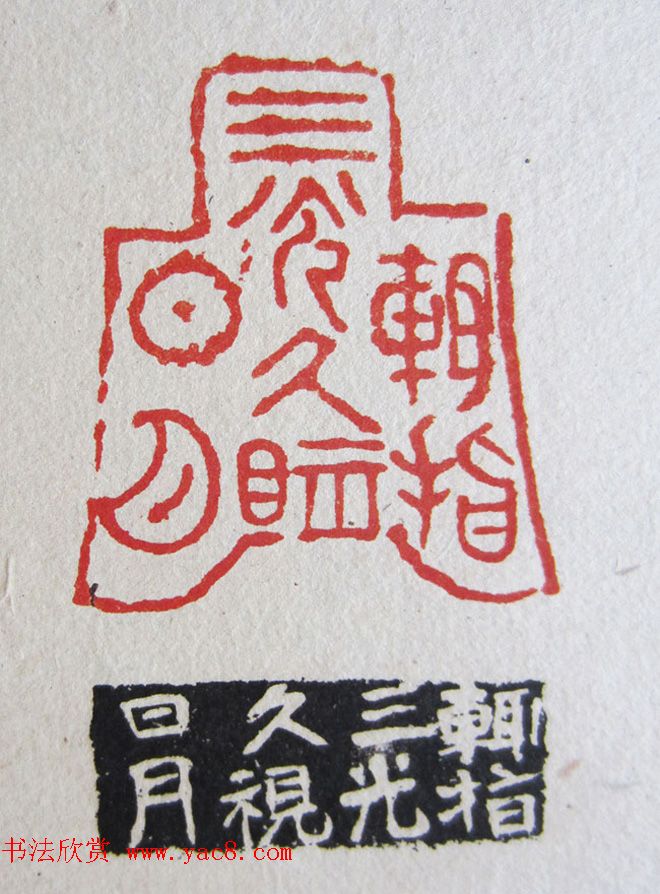 輒指
三光久眎
日月
輒指
三光
久視
日月
书法欣赏 www.yac8.com